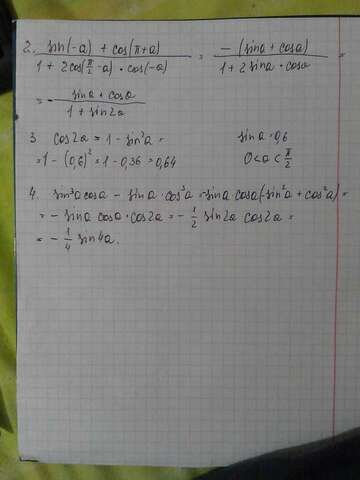 2. sin(-a) + cos(π+a) / 1 + 2cos(π/2 - a) · cos(-a) = -(sina + cosa) / 1 + 2 sina · cosa =
= - sina + cosa / 1 + sin2a
3. cos2a = 1 - sin²a = sina = 0,6
= 1 - (0,6)² = 1 - 0,36 = 0,64 0 < a < π/2
4. sin³a cosa - sina · cos³a = -sina cosa(-sin²a + cos²a) =
= - sina cosa · cos2a = - 1/2 sin2a cos2a =
= - 1/4 sin4a.